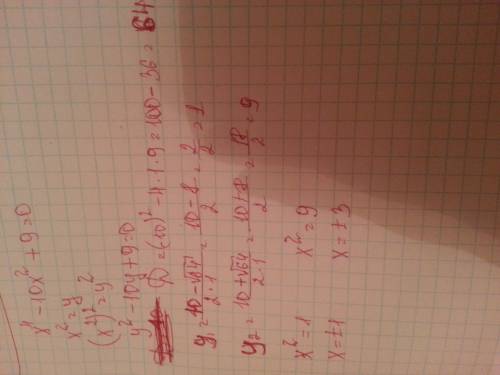 x⁴ - 10x² + 9 = 0
x² = y
(x²)² = y²
y² - 10y + 9 = 0
D = (-10)² - 4·1·9 = 100 - 36 = 64
y₁ = (10 - √64)/(2·1) = (10 - 8)/2 = 2/2 = 1
y₂ = (10 + √64)/(2·1) = (10 + 8)/2 = 18/2 = 9
x² = 1 x² = 9
x = ±1 x = ±3